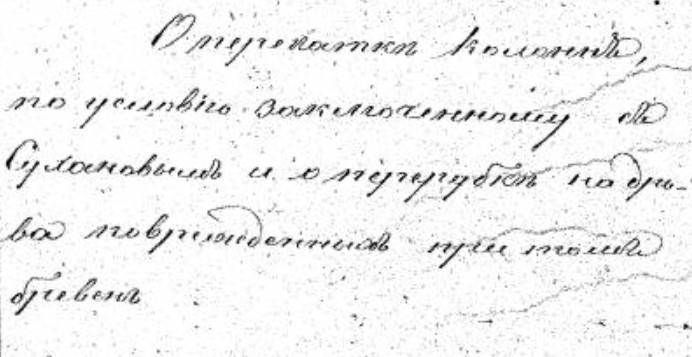 О перекаткѣ колоннъ,
по условію заключенному съ
Сухановымъ и о перерубкѣ на дро-
ва поврежденныхъ при томъ
бревенъ